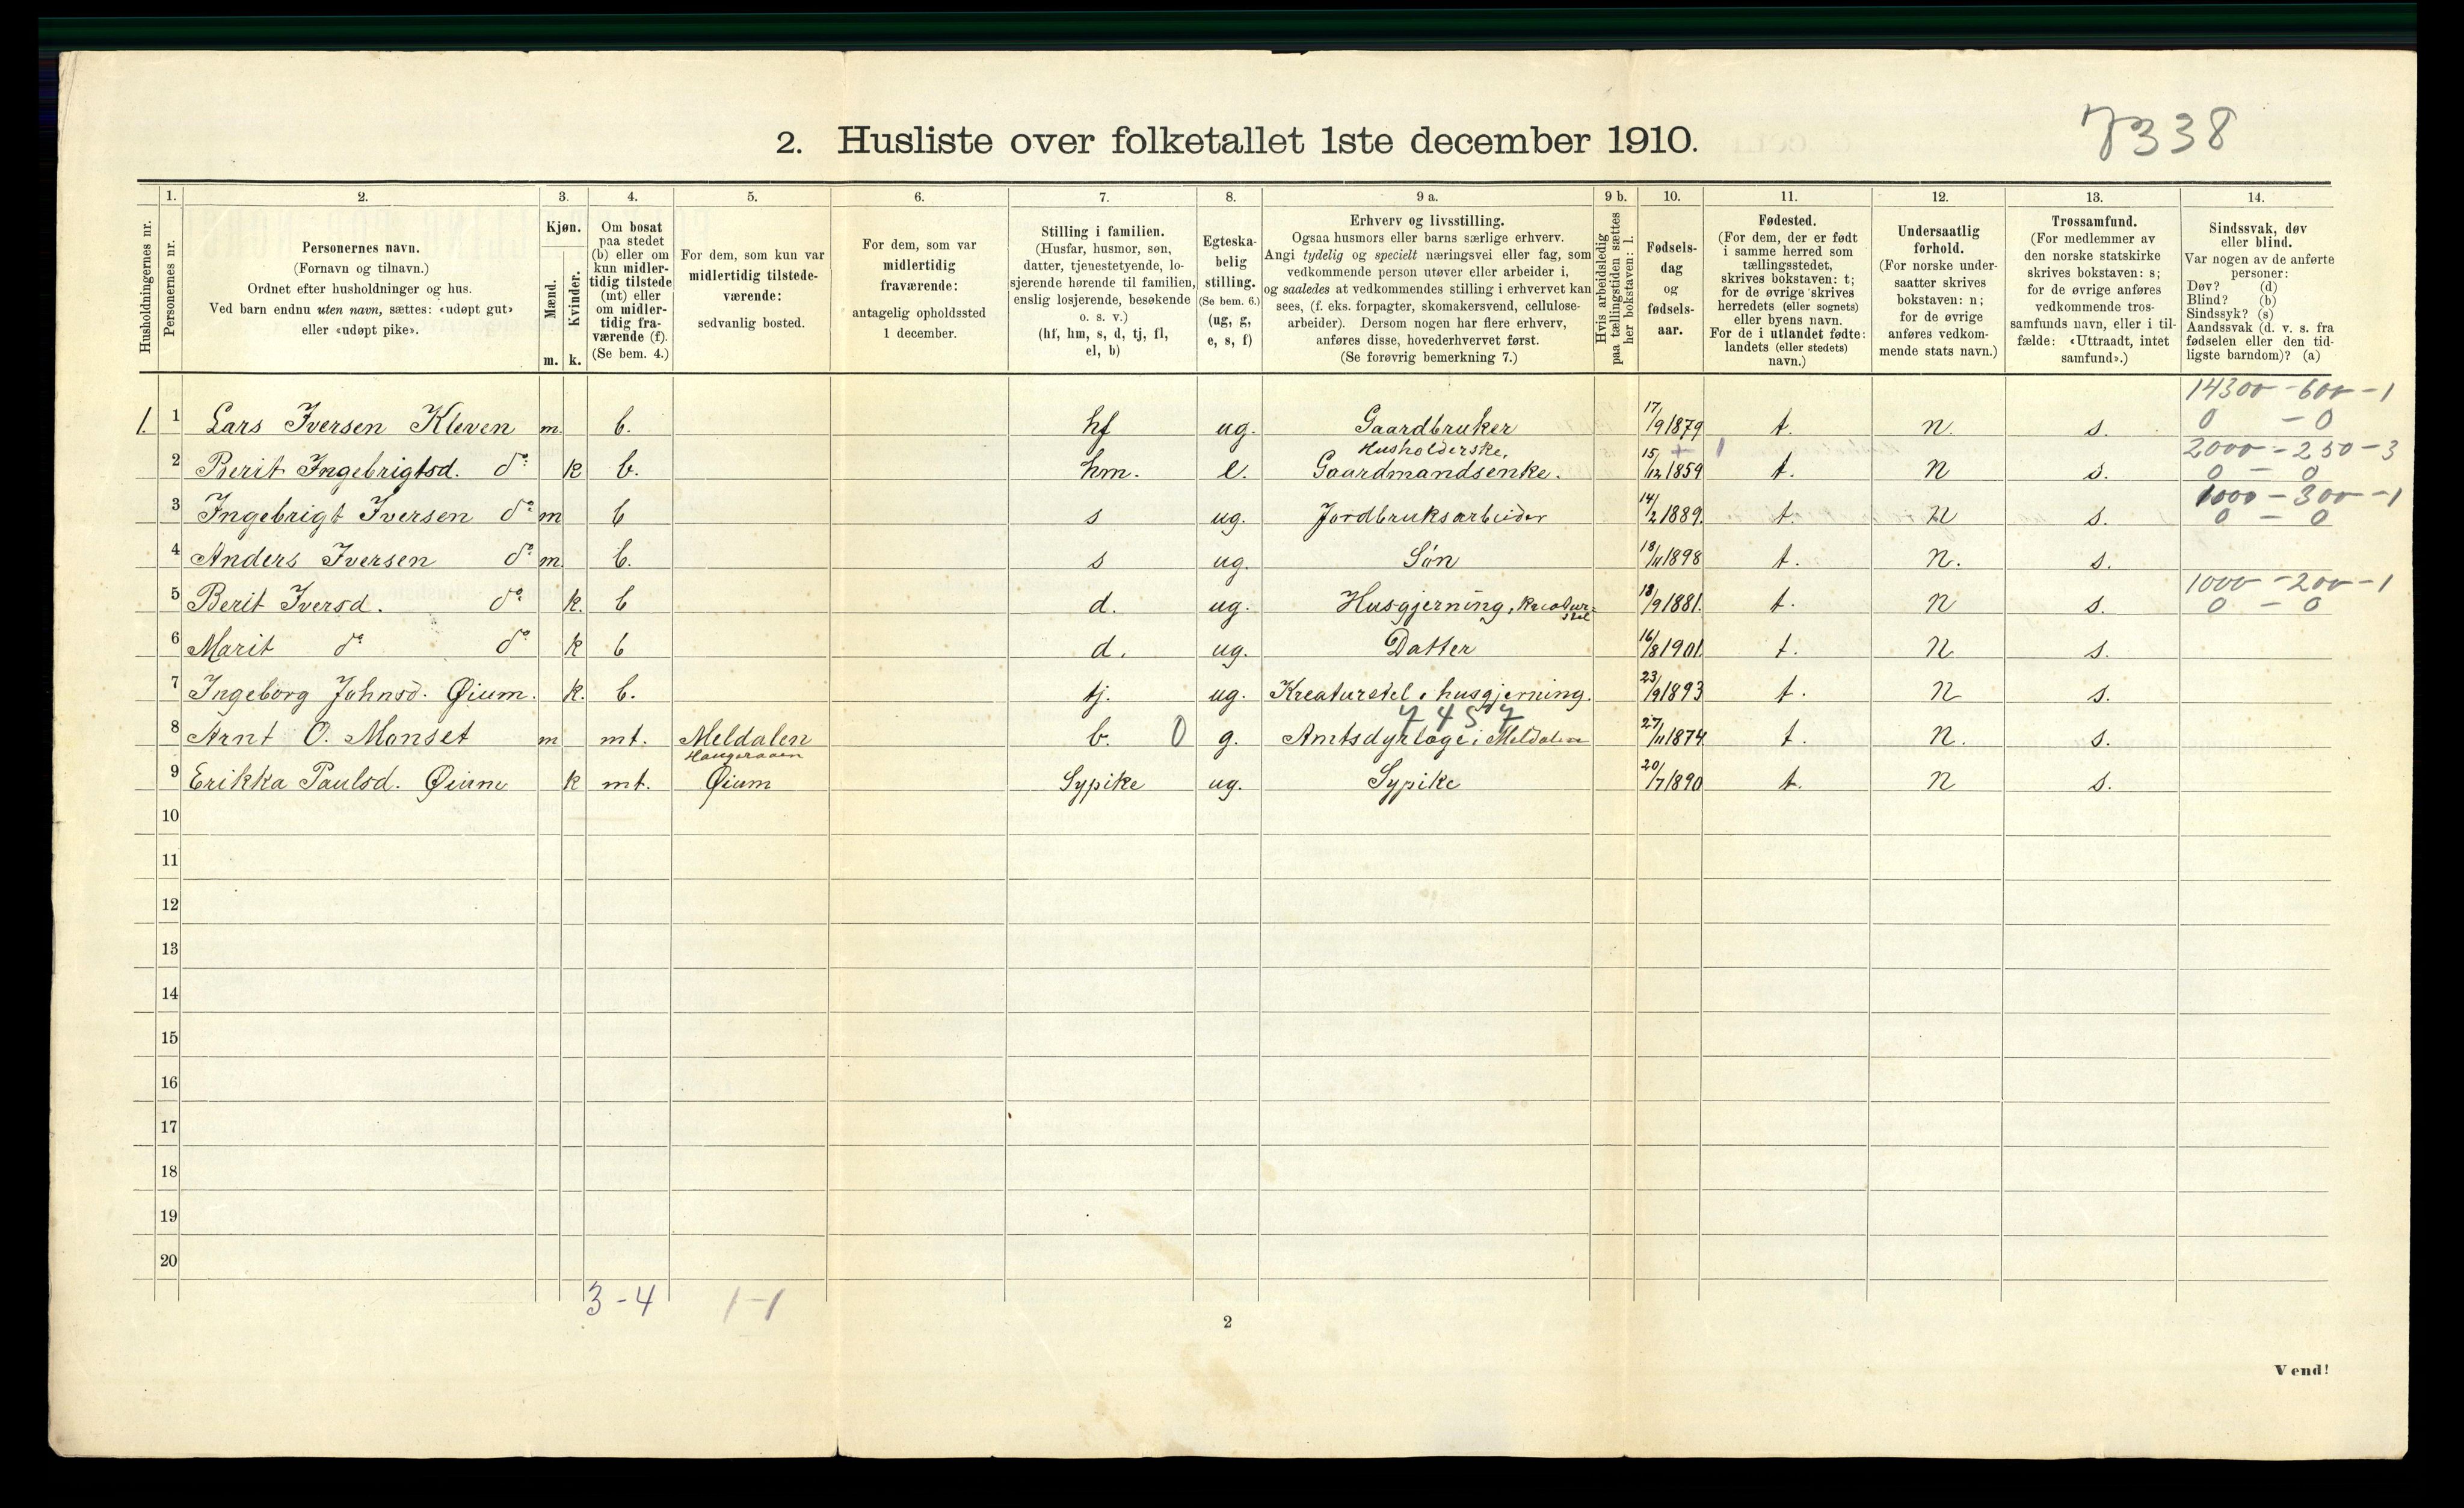 7338
2. Husliste over folketallet 1ste december 1910.
1. 2. 3. 4. 5. 6. 7. 8. 9 a. 9 b. 10. 11. 12. 13. 14.
Husholdningernes nr.
Personernes nr.
Personernes navn.
(Fornavn og tilnavn.)
Ordnet efter husholdninger og hus.
Ved barn endnu uten navn, sættes: «udøpt gut»
eller «udøpt pike».
Kjøn.
Mænd.
m.
Kvinder.
k.
Om bosat
paa stedet
(b) eller om
kun midler-
tidig tilstede
(mt) eller
om midler-
tidig fra-
værende (f).
(Se bem. 4.)
For dem, som kun var
midlertidig tilstede-
værende:
sedvanlig bosted.
For dem, som var
midlertidig
fraværende:
antagelig opholdssted
1 december.
Stilling i familien.
(Husfar, husmor, søn,
datter, tjenestetyende, lo-
sjerende hørende til familien,
enslig losjerende, besøkende
o. s. v.)
(hf, hm, s, d, tj, fl,
el, b)
Egteska-
belig
stilling.
(Se bem. 6.)
(ug, g,
e, s, f)
Erhverv og livsstilling.
Ogsaa husmors eller barns særlige erhverv.
Angi tydelig og specielt næringsvei eller fag, som
vedkommende person utøver eller arbeider i,
og saaledes at vedkommendes stilling i erhvervet kan
sees, (f. eks. forpagter, skomakersvend, cellulose-
arbeider). Dersom nogen har flere erhverv,
anføres disse, hovederhvervet først.
(Se forøvrig bemerkning 7.)
Hvis arbeidsledig
paa tællingstiden sættes
her bokstaven: l.
Fødsels-
dag
og
fødsels-
aar.
Fødested.
(For dem, der er født
i samme herred som
tællingsstedet,
skrives bokstaven: t;
for de øvrige skrives
herredets (eller sognets)
eller byens navn.
For de i utlandet fødte:
landets (eller stedets)
navn.)
Undersaatlig
forhold.
(For norske under-
saatter skrives
bokstaven: n;
for de øvrige
anføres vedkom-
mende stats navn.)
Trossamfund.
(For medlemmer av
den norske statskirke
skrives bokstaven: s;
for de øvrige anføres
vedkommende tros-
samfunds navn, eller i til-
fælde: «Uttraadt, intet
samfund».)
Sindssvak, døv
eller blind.
Var nogen av de anførte
personer:
Døv? (d)
Blind? (b)
Sindssyk? (s)
Aandssvak (d. v. s. fra
fødselen eller den tid-
ligste barndom)? (a)
14300 - 600 - 1
1. 1 Lars Iversen Kleven m. b. hf ug. Gaardbruker 17/9 1879 t. n. s. 0 - 0
Husholderske, 2000 - 250 - 3
2 Berit Ingebrigtsd. do k b. hm. e. Gaardmandsenke. 15/12 1859 t. n s. 0 - 0
1000 - 300 - 1
3 Ingebrigt Iversen do m b s ug. Jordbruksarbeider 14/2 1889. t. n s. 0 - 0
4 Anders Iversen do m. b. s ug. Søn 18/11 1898 t. n. s.
1000 - 200 - 1
5 Berit Iversd. do k. b d. ug. Husgjerning, Kreatur- stel 18/9 1881. t. n s. 0 - 0
6 Marit do do k b d. ug. Datter 16/8 1901. t. n s.
7 Ingeborg Johnsd. Øium. k. b. tj. ug. Kreaturstel & husgjerning. 23/9 1893 t. n s.
7457
8 Arnt O. Monset m mt. Meldalen b. 0 g. Amtsdyrlæge i Meldalen 27/11 1874 t. n. s.
9 Erikka Paulsd. Øium k mt. Øium Sypike ug. Sypike 20/7 1890 t. n s.
10
11
12
13
14
15
16
17
18
19
20
3 - 4 1 - 1
2
Vend!